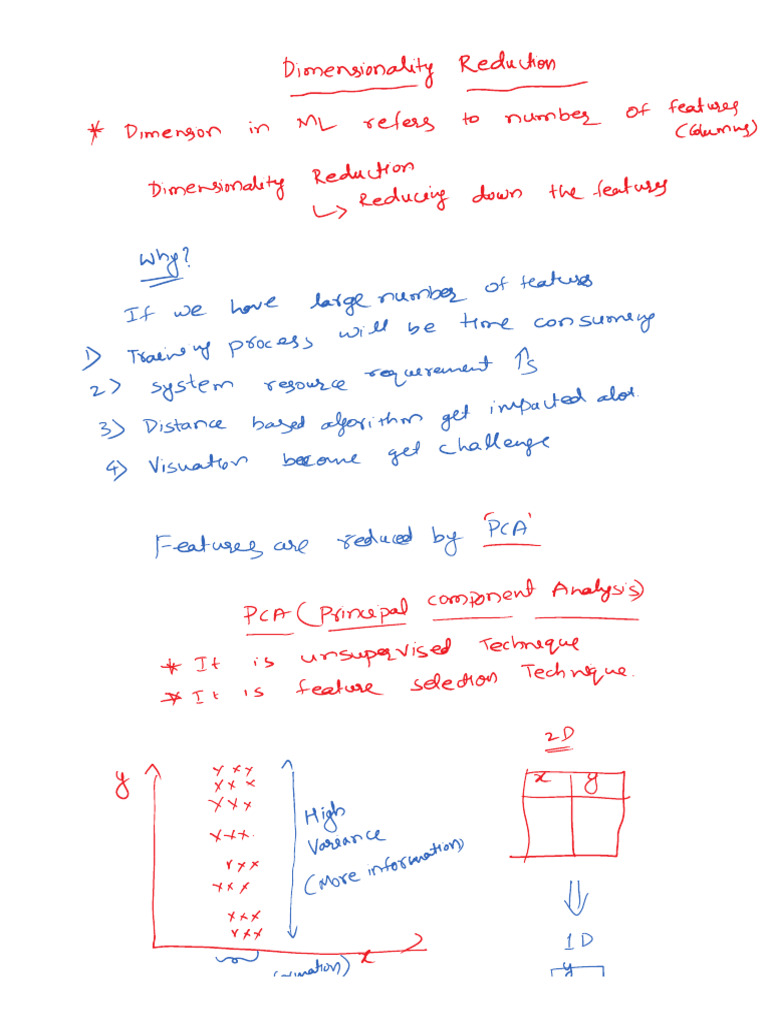 Dimensionality Reduction
* Dimenson in ML refers to number of features (Columns)
Dimensionality Reduction
↳ Reducing down the features
Why?
If we have large number of features
1) Training process will be time consuming
2) system resource requirement ↑s
3) Distance based algorithm get impacted alot.
4) Visuation become get challenge
Features are reduced by 'PCA'
PCA (Principal component Analysis)
* It is unsupervised Technique
* It is feature selection Technique.
2D
x y
y
High
Variance
(More information)
x
1D
y